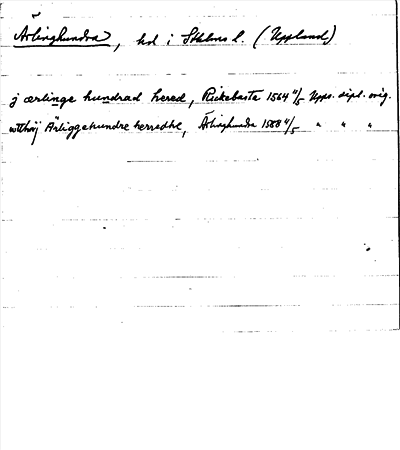 Ärlinghundra, hd i Sthlms l. (Uppland)
j ærlinge hundrad hered, Rickebasta 1564 4/5 Upps. dipl. orig.
Ärliggehundre herredhe, Ärlinghundra 1568 4/5 " " "